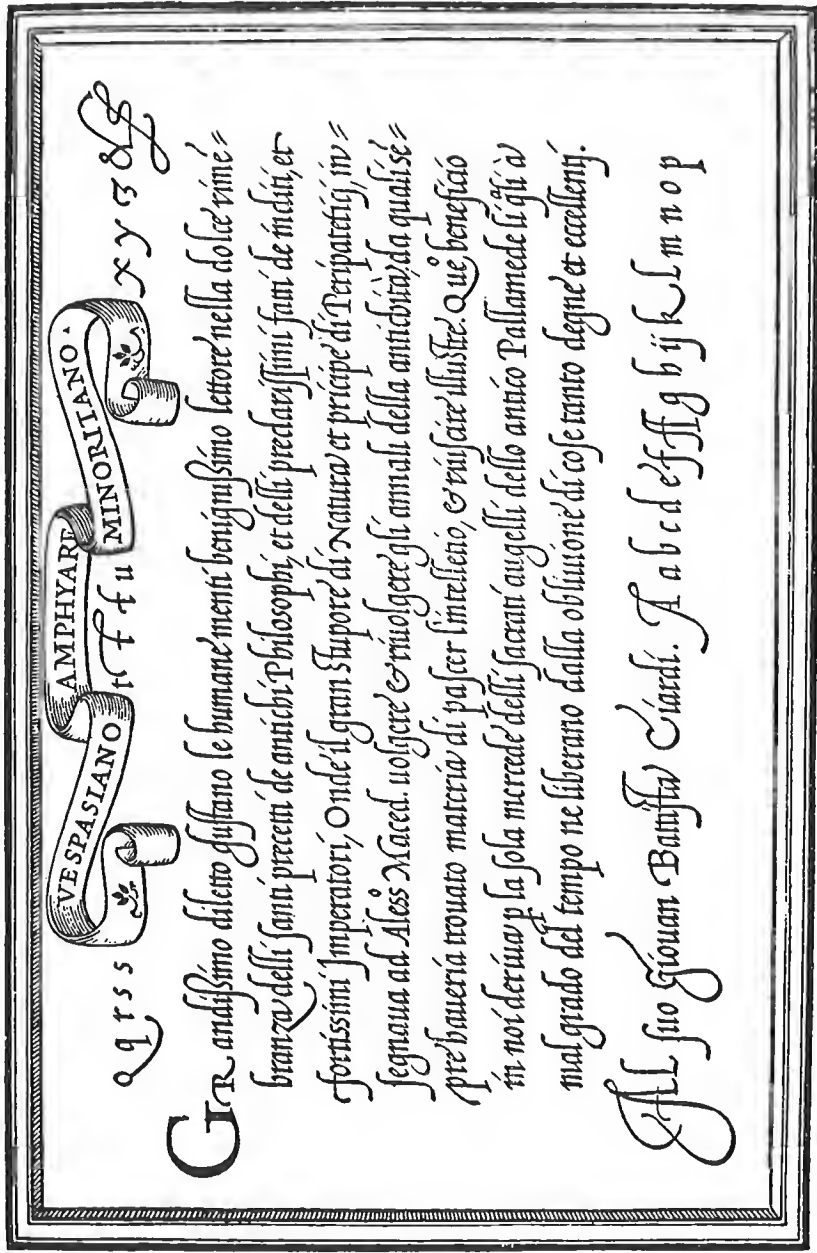 VESPASIANO AMPHYARE MINORITANO
Q q r s s tt T t u x y z &
GRandißimo diletto gustano le humane menti benignißimo lettore nella dolce rime=
branza delli santi precetti de antichi Philosophi, et delli preclarissimi fatti de inditi, et
fortissimi Imperatori, Onde il gran stupore di Natura et pricipe di Peripatetigi, in=
segnaua ad Aless.º Maced. uolgere & riuolgere gli annali della antichità, da quali sē=
pre haueria trouato materia di pascer l'intelletto, & riuscire illustre. Quel beneficio
in noi deriua p la sola mercede delli saccenti augelli dello antico Pallamede li qli à
mal grado del tempo ne liberano dalla obliuione di cose tanto degne et eccellenti.
Al suo Giouan Battista Ciardi. A a b c d e f ff g h ij k L m n o p